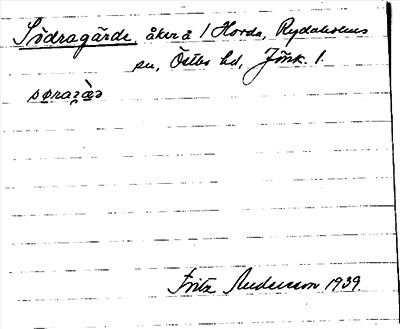 Södragärde, åker å 1 Horda, Rydaholms
sn, Östbo hd, Jönk. l.
Fritz Andersson 1939.